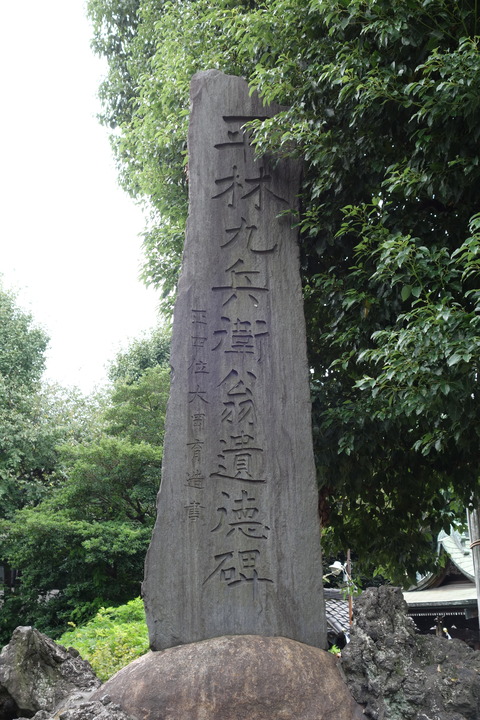 平林九兵衛翁遺德碑
正四位大曹育造書